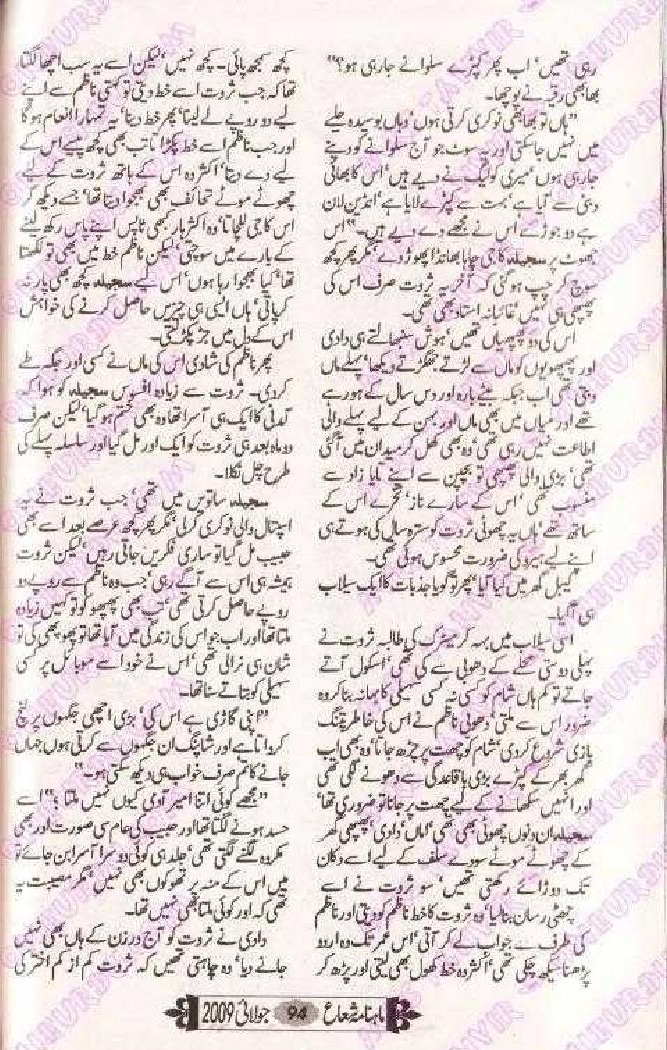 رہی تھیں' اب پھر کپڑے سلوانے جارہی ہو؟"
بھابھی رقیہ نے پوچھا۔
"ہاں تو بھابھی نوکری کرتی ہوں' وہاں بوسیدہ حلیے
میں نہیں جاسکتی اور یہ سوٹ جو آج سلوانے کو دینے
جارہی ہوں' میری کولیگ نے دیے ہیں' اس کا بھائی
دبئی سے آیا ہے' بہت سے کپڑے لایا ہے' انڈین لان
کے دو جوڑے اس نے مجھے دے دیے ہیں۔" اس
جھوٹ پر سنجیلہ کا جی چاہا بھانڈا پھوڑ دے' مگر پھر کچھ
سوچ کر چپ ہوگئی کہ آخر یہ ثروت صرف اس کی
پھپھی ہی نہیں' غائبانہ استاد بھی تھی۔
اس کی دو پھپھیاں تھیں' ہوش سنبھالتے ہی دادی
اور پھپھیوں کو ماں سے لڑتے جھگڑتے دیکھا' پہلے ماں
دبتی تھی اب جبکہ بیٹے بارہ اور دس سال کے ہورہے
تھے اور میاں میں بھی ماں اور بہن کے لیے پہلے والی
اطاعت نہیں رہی تھی' وہ بھی کھل کر میدان میں آگئی
تھی' بڑی والی پھپھی تو بچپن سے اپنے تایا زاد سے
منسوب تھی' اس کے سارے ناز' نخرے اس کے
ساتھ تھے' ہاں یہ چھوٹی ثروت کو سترہ سال کی ہوتے ہی
اپنے لیے ہیرو کی ضرورت محسوس ہوگئی تھی۔
کیبل گھر میں کیا آیا' پھر تو گویا جذبات کا ایک سیلاب
ہی آگیا۔
اسی سیلاب میں بہہ کر میٹرک کی طالبہ ثروت نے
پہلی دوستی محلے کے دھوبی سے کی تھی' اسکول آتے
جاتے تو کم ہاں شام کو کسی نہ کسی سہیلی کا بہانہ بنا کر وہ
ضرور اس سے ملتی' دھوبی ناظم نے اس کی خاطر پتنگ
بازی شروع کردی' شام کو چھت پر چڑھ جاتا' وہ بھی اب
گھر بھر کے کپڑے بڑی باقاعدگی سے دھونے لگی تھی
اور انہیں سکھانے کے لیے چھت پر جانا تو ضروری تھا'
سنجیلہ ان دنوں چھوٹی بھی تھی' اماں' دادی' پھپھی گھر
کے چھوٹے موٹے سودے سلف کے لیے اسے دکان
تک دوڑائے رکھتی تھیں' سو ثروت نے اسے
چٹھی رساں بنالیا' وہ ثروت کا خط ناظم کو دیتی اور ناظم
کی طرف سے جواب لے کر آتی' اس عمر تک وہ اردو
پڑھنا سیکھ چکی تھی' اکثر وہ خط کھول بھی لیتی اور پڑھ کر
کچھ سمجھ پاتی۔ کچھ نہیں' لیکن اسے یہ سب اچھا لگتا
تھا کہ جب ثروت اسے خط دیتی تو کہتی ناظم سے اپنے
لیے دو روپے لے لینا' پھر خط دینا' یہ تمہارا انعام ہوگا
اور جب ناظم اسے خط پکڑاتا تب بھی کچھ پیسے اس کے
لیے دے دیتا' اکثر وہ اس کے ہاتھ ثروت کے لیے
چھوٹے موٹے تحائف بھی بھجوا دیتا تھا' جسے دیکھ کر
اس کا جی للچاتا' وہ اکثر ہار کبھی ٹاپس اپنے پاس رکھ لینے
کے بارے میں سوچتی' لیکن ناظم خط میں بھی تو لکھتا
تھا' کیا بھجوا رہا ہوں' اس لیے سنجیلہ کچھ بھی پار نہ
کر پاتی' ہاں ایسی ہی چیزیں حاصل کرنے کی خواہش
اس کے دل میں جڑ پکڑ لیتی۔
پھر ناظم کی شادی اس کی ماں نے کسی اور جگہ طے
کردی۔ ثروت سے زیادہ افسوس سنجیلہ کو ہوا کہ
آمدنی کا ایک ہی آسرا تھا وہ بھی ختم ہوگیا' لیکن صرف
دو ماہ بعد ہی ثروت کو ایک اور مل گیا اور سلسلہ پہلے کی
طرح چل نکلا۔
سنجیلہ ساتویں میں تھی' جب ثروت نے یہ
اسپتال والی نوکری کرلی' مگر پھر کچھ عرصے بعد اسے بھی
حبیب مل گیا تو ساری فکریں جاتی رہیں' لیکن ثروت
ہمیشہ ہی اس سے آگے رہی' جب وہ ناظم سے روپے دو
روپے حاصل کرتی تھی' تب بھی پھپھو کو تو کہیں زیادہ
ملتا تھا اور اب جو اس کی زندگی میں آیا تھا تو پھوپھی کی تو
شان ہی نرالی تھی' اس نے خود اسے موبائل پر کسی
سہیلی کو بتاتے سنا تھا۔
"اپنی گاڑی ہے اس کی' بڑی اچھی جگہوں پر لنچ
کرواتا ہے اور شاپنگ ان جگہوں سے کرتی ہوں جہاں
جانے کا تم صرف خواب ہی دیکھ سکتی ہو۔"
"مجھے کوئی اتنا امیر آدمی کیوں نہیں ملتا؟" اسے
حسد ہونے لگتا تھا اور حبیب کی عام سی صورت اور بھی
مکروہ لگنے لگتی تھی' جلد ہی کوئی دوسرا آسرا بن جائے تو
میں اس کے منہ پر تھوکوں بھی نہیں' مگر مصیبت یہ
تھی کہ اور کوئی ملتا بھی نہیں تھا۔
دادی نے ثروت کو آج درزن کے ہاں بھی نہیں
جانے دیا' وہ چاہتی تھیں کہ ثروت کم از کم اختر کی
ماہنامہ شعاع 94 جولائی 2009